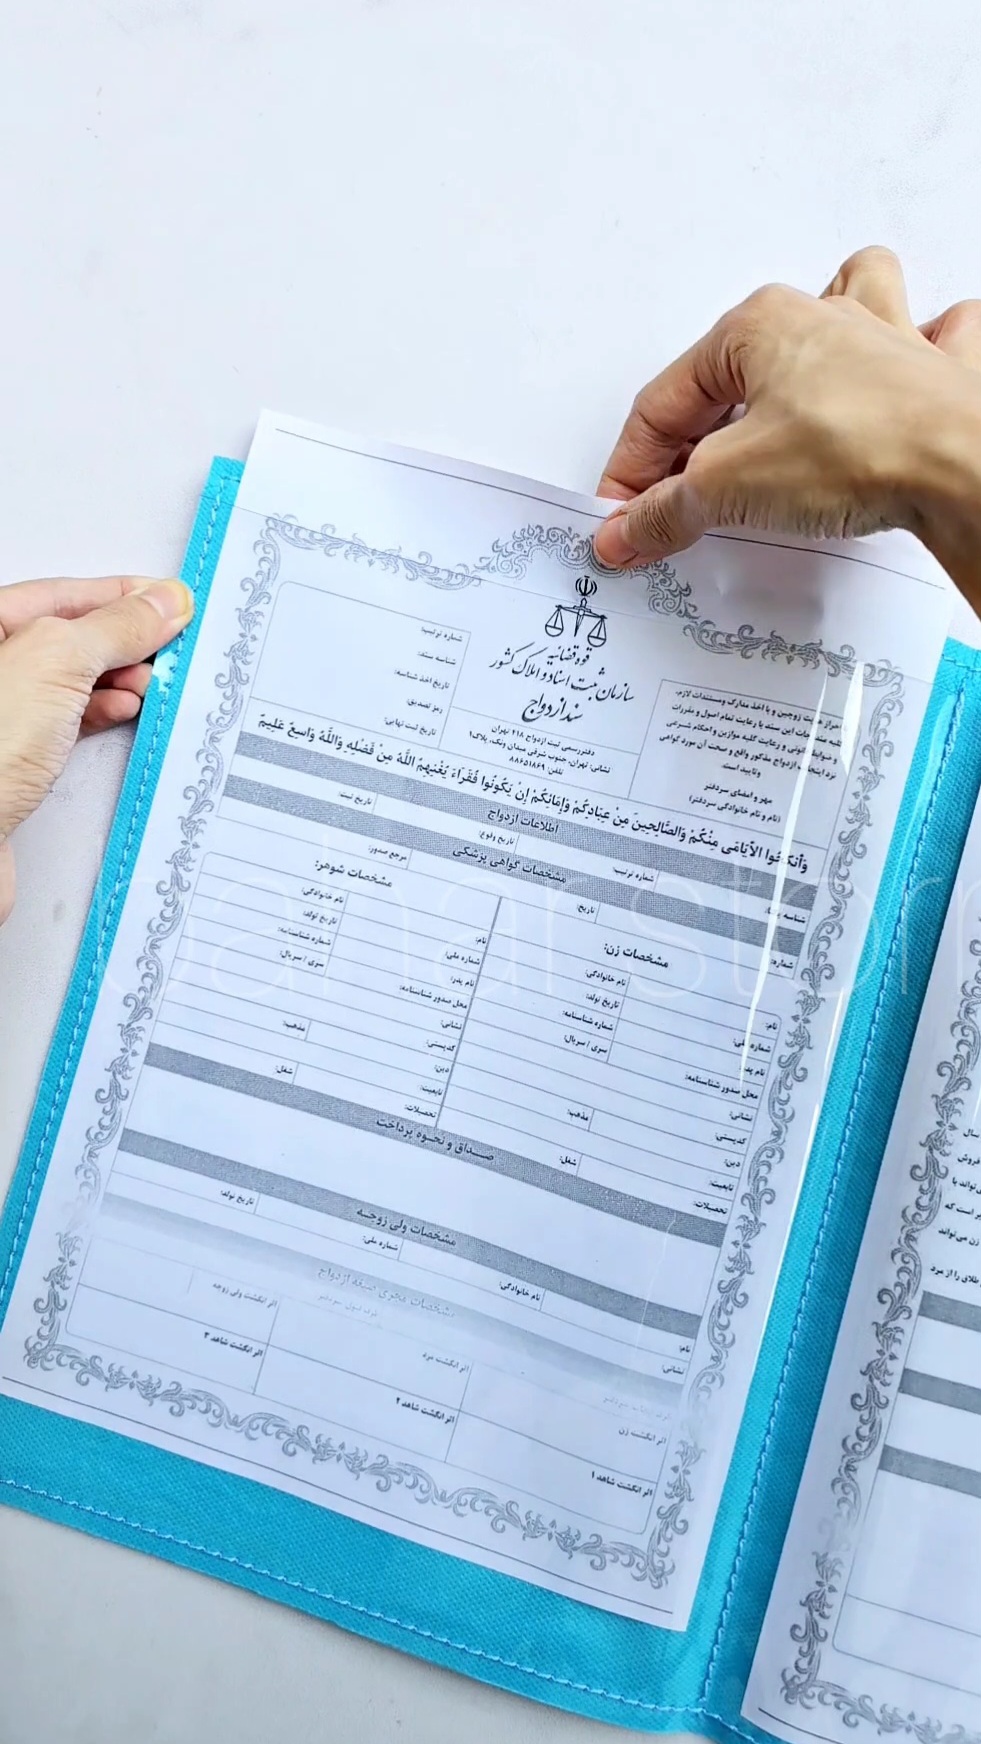 قوه قضائیه
سازمان ثبت اسناد و املاک کشور
سند ازدواج
دفتر رسمی ثبت ازدواج ۲۱۸ تهران
نشانی: تهران، جنوب شرقی میدان ونک، پلاک۹
تلفن: ۸۸۶۵۱۸۶۹
احراز هویت زوجین و با اخذ مدارک و مستندات لازم،
این سند با رعایت تمام اصول و مقررات
و رعایت کلیه موازین و احکام شرعی
نزد اینجانب ازدواج مذکور واقع و صحت آن مورد گواهی
و تایید است.
مهر و امضای سردفتر
(نام و نام خانوادگی سردفتر)
شماره ترتیب:
شناسه سند:
تاریخ اخذ شناسه:
رمز تصدیق:
تاریخ ثبت نهایی:
وَأَنكِحُوا الأَيَامَى مِنْكُمْ وَالصَّالِحِينَ مِنْ عِبَادِكُمْ وَإِمَائِكُمْ إِنْ يَكُونُوا فُقَرَاءَ يُغْنِهِمُ اللَّهُ مِنْ فَضْلِهِ وَاللَّهُ وَاسِعٌ عَلِيمٌ
اطلاعات ازدواج
شناسه شماره ترتیب: تاریخ وقوع: تاریخ ثبت:
مشخصات گواهی پزشکی
شماره: تاریخ: مرجع صدور:
مشخصات زن:
نام: نام خانوادگی:
شماره ملی: تاریخ تولد:
نام پدر: شماره شناسنامه:
محل صدور شناسنامه: سری / سریال:
نشانی:
کدپستی:
دین: مذهب:
تابعیت:
تحصیلات: شغل:
مشخصات شوهر:
نام: نام خانوادگی:
شماره ملی: تاریخ تولد:
نام پدر: شماره شناسنامه:
محل صدور شناسنامه: سری / سریال:
نشانی:
کدپستی:
دین: مذهب:
تابعیت:
تحصیلات: شغل:
صداق و نحوه پرداخت
مشخصات ولی زوجه
نام: نام خانوادگی: شماره ملی: تاریخ تولد:
نشانی:
مشخصات مجری صیغه ازدواج
اثر انگشت زن
اثر انگشت مرد
اثر انگشت ولی زوجه
اثر انگشت شاهد ۱
اثر انگشت شاهد ۲
اثر انگشت شاهد ۳
سال
فروش
می‌تواند با
است که
زن می‌تواند
طلاق را از مرد